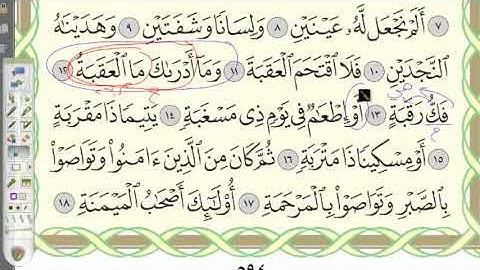 ٧ أَلَمْ نَجْعَل لَّهُۥ عَيْنَيْنِ ٨ وَلِسَانًا وَشَفَتَيْنِ ٩ وَهَدَيْنَٰهُ
ٱلنَّجْدَيْنِ ١٠ فَلَا ٱقْتَحَمَ ٱلْعَقَبَةَ ١١ وَمَآ أَدْرَىٰكَ مَا ٱلْعَقَبَةُ ١٢
فَكُّ رَقَبَةٍ ١٣ أَوْ إِطْعَٰمٌ فِى يَوْمٍ ذِى مَسْغَبَةٍ ١٤ يَتِيمًا ذَا مَقْرَبَةٍ
١٥ أَوْ مِسْكِينًا ذَا مَتْرَبَةٍ ١٦ ثُمَّ كَانَ مِنَ ٱلَّذِينَ ءَامَنُوا۟ وَتَوَاصَوْا۟
بِٱلصَّبْرِ وَتَوَاصَوْا۟ بِٱلْمَرْحَمَةِ ١٧ أُو۟لَٰٓئِكَ أَصْحَٰبُ ٱلْمَيْمَنَةِ ١٨